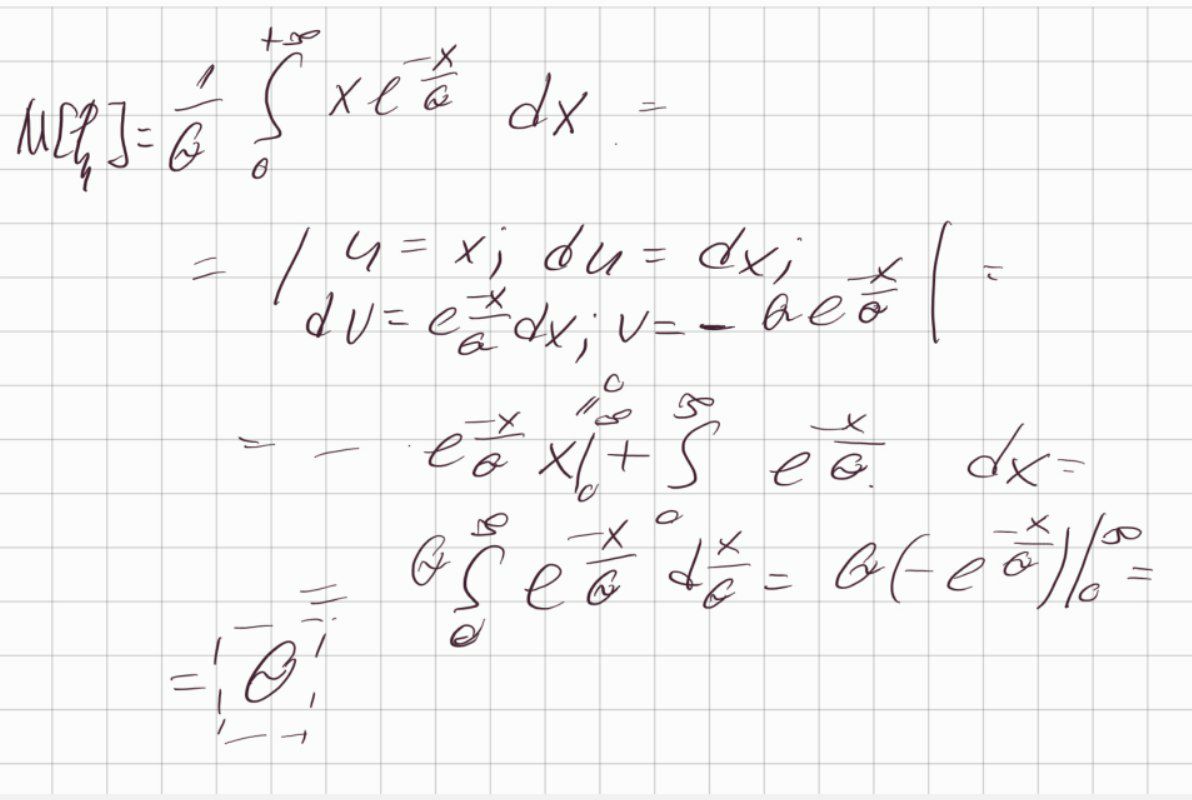 M[ξ] = 1/θ ∫₀^{+∞} x e^{-x/θ} dx =
= | u = x; du = dx;
dv = e^{-x/θ} dx; v = - θ e^{-x/θ} | =
= - e^{-x/θ} x |₀^∞ "0 + ∫₀^∞ e^{-x/θ} dx =
= θ ∫₀^∞ e^{-x/θ} d x/θ = θ(-e^{-x/θ}) |₀^∞ =
= θ